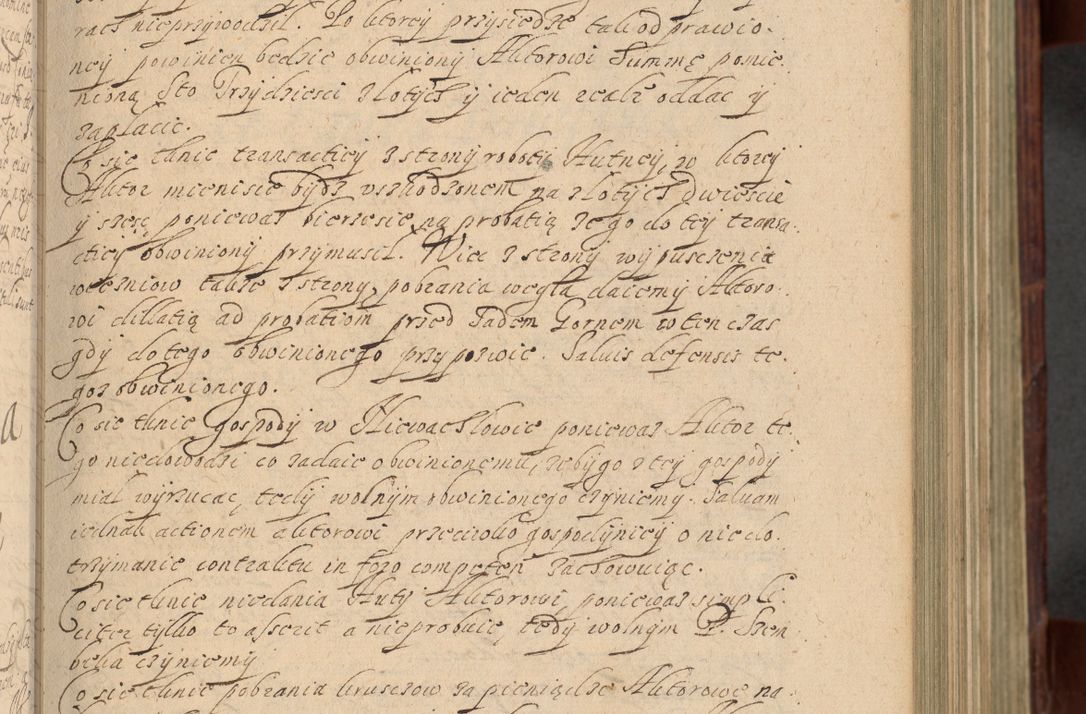 rach nieprzywodził. Po ktorey przysiędze tak od prawio-
ney powinien będzie obwiniony Aktorowi Summę pomie-
nioną Sto Trzydziesci złotych y ieden realr oddac y
zapłacic.
Co się tknie transacticy z strony roboty Hutney, w ktorey
Aktor mieni się bydz uszkodzonem na złotych dwiescie
y szesc, poniewasz bierze się na probatią ze go do tey transa-
cticy obwiniony przymusił. Więc z strony wypuszczenia
wcześniow także z strony pobrania węgla daiemy Aktoro-
wi dillatią ad probatiom przed Sądem Gornem w ten czas
gdy do tego obwinionego przypozwie. Salvis defensis te-
goz obwinionego.
Co się tknie gospody w Niewachlowie poniewasz Aktor te-
go niedowodzi co zadaie obwinionemu, zeby go z tey gospody
miał wyrzucac, tedy wolnym obwinionego czyniemy. Salvam
iednak actionem aktorowi przeciwko gospodyniey o niedo-
trzymanie contraktu in foro competen zachowuiąc.
Co się tknie niedania Huty Aktorowi, poniewasz simpli-
citer tylko to asserit a nieprobuie, tedy wolnym P. Szem-
beka czyniemy
Co się tknie pobrania kruszczow za pieniądze Aktorowe na-